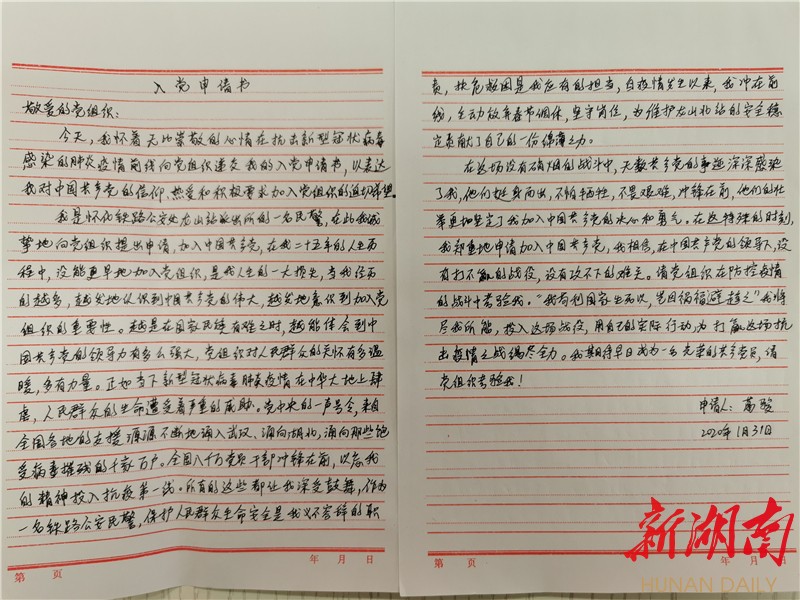 入党申请书
敬爱的党组织：
今天，我怀着无比崇敬的心情在抗击新型冠状病毒
感染的肺炎疫情前线向党组织递交我的入党申请书，以表达
我对中国共产党的信仰、热爱和积极要求加入党组织的迫切希望。
我是怀化铁路公安处龙山站派出所的一名民警，在此我诚
挚地向党组织提出申请，加入中国共产党，在我二十五年的人生历
程中，没能更早地加入党组织，是我人生的一大损失，当我经历
的越多，越发地认识到中国共产党的伟大，越发地意识到加入党
组织的重要性。越是在国家民族有难之时，越能体会到中
国共产党的领导力有多么强大，党组织对人民群众的关怀有多温
暖，多有力量。正如当下新型冠状病毒肺炎疫情在中华大地上肆
虐，人民群众的生命遭受着严重的威胁。党中央的一声号令，来自
全国各地的支援源源不断地涌入武汉、涌向湖北，涌向那些饱
受病毒摧残的千家万户。全国八千万党员干部冲锋在前，以忘我
的精神投入抗疫第一线。所有的这些都让我深受鼓舞，作为
一名铁路公安民警，保护人民群众生命安全是我义不容辞的职
第 页
年 月 日
责，扶危救困是我应有的担当，自疫情发生以来，我冲在前
线，主动放弃春节调休，坚守岗位，为维护龙山北站的安全稳
定贡献了自己的一份绵薄之力。
在这场没有硝烟的战斗中，无数共产党的事迹深深感染
了我，他们挺身而出，不怕牺牲，不畏艰难，冲锋在前，他们的壮
举更加坚定了我加入中国共产党的决心和勇气。在这特殊的时刻，
我郑重地申请加入中国共产党，我相信，在中国共产党的领导下，没
有打不赢的战役，没有攻不下的难关。请党组织在防控疫情
的战斗中考验我。“我苟利国家生死以，岂因祸福避趋之”我将
尽我所能，投入这场战役，用自己的实际行动为打赢这场抗
击疫情之战竭尽全力。我期待早日成为一名光荣的共产党员，请
党组织考验我！
申请人：
2020年1月31日
第 页
年 月
新湖南
HUNAN DAILY